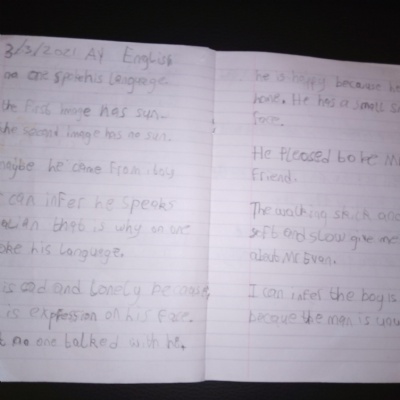 3/3/2021 A4 English
on one spoke his language.
the first image has sun.
the second image has no sun.
maybe he came from
can infer he speaks
alian that is why on one
oke his language.
is sad and lonely because,
is expression on his face.
no one talked with he.
he is happy because
home. He has a small
face.
He pleosed to he
Friend.
The walking stick and
soft and slow give me
about Mr Evan.
I can infer the boy is
becaue the man is